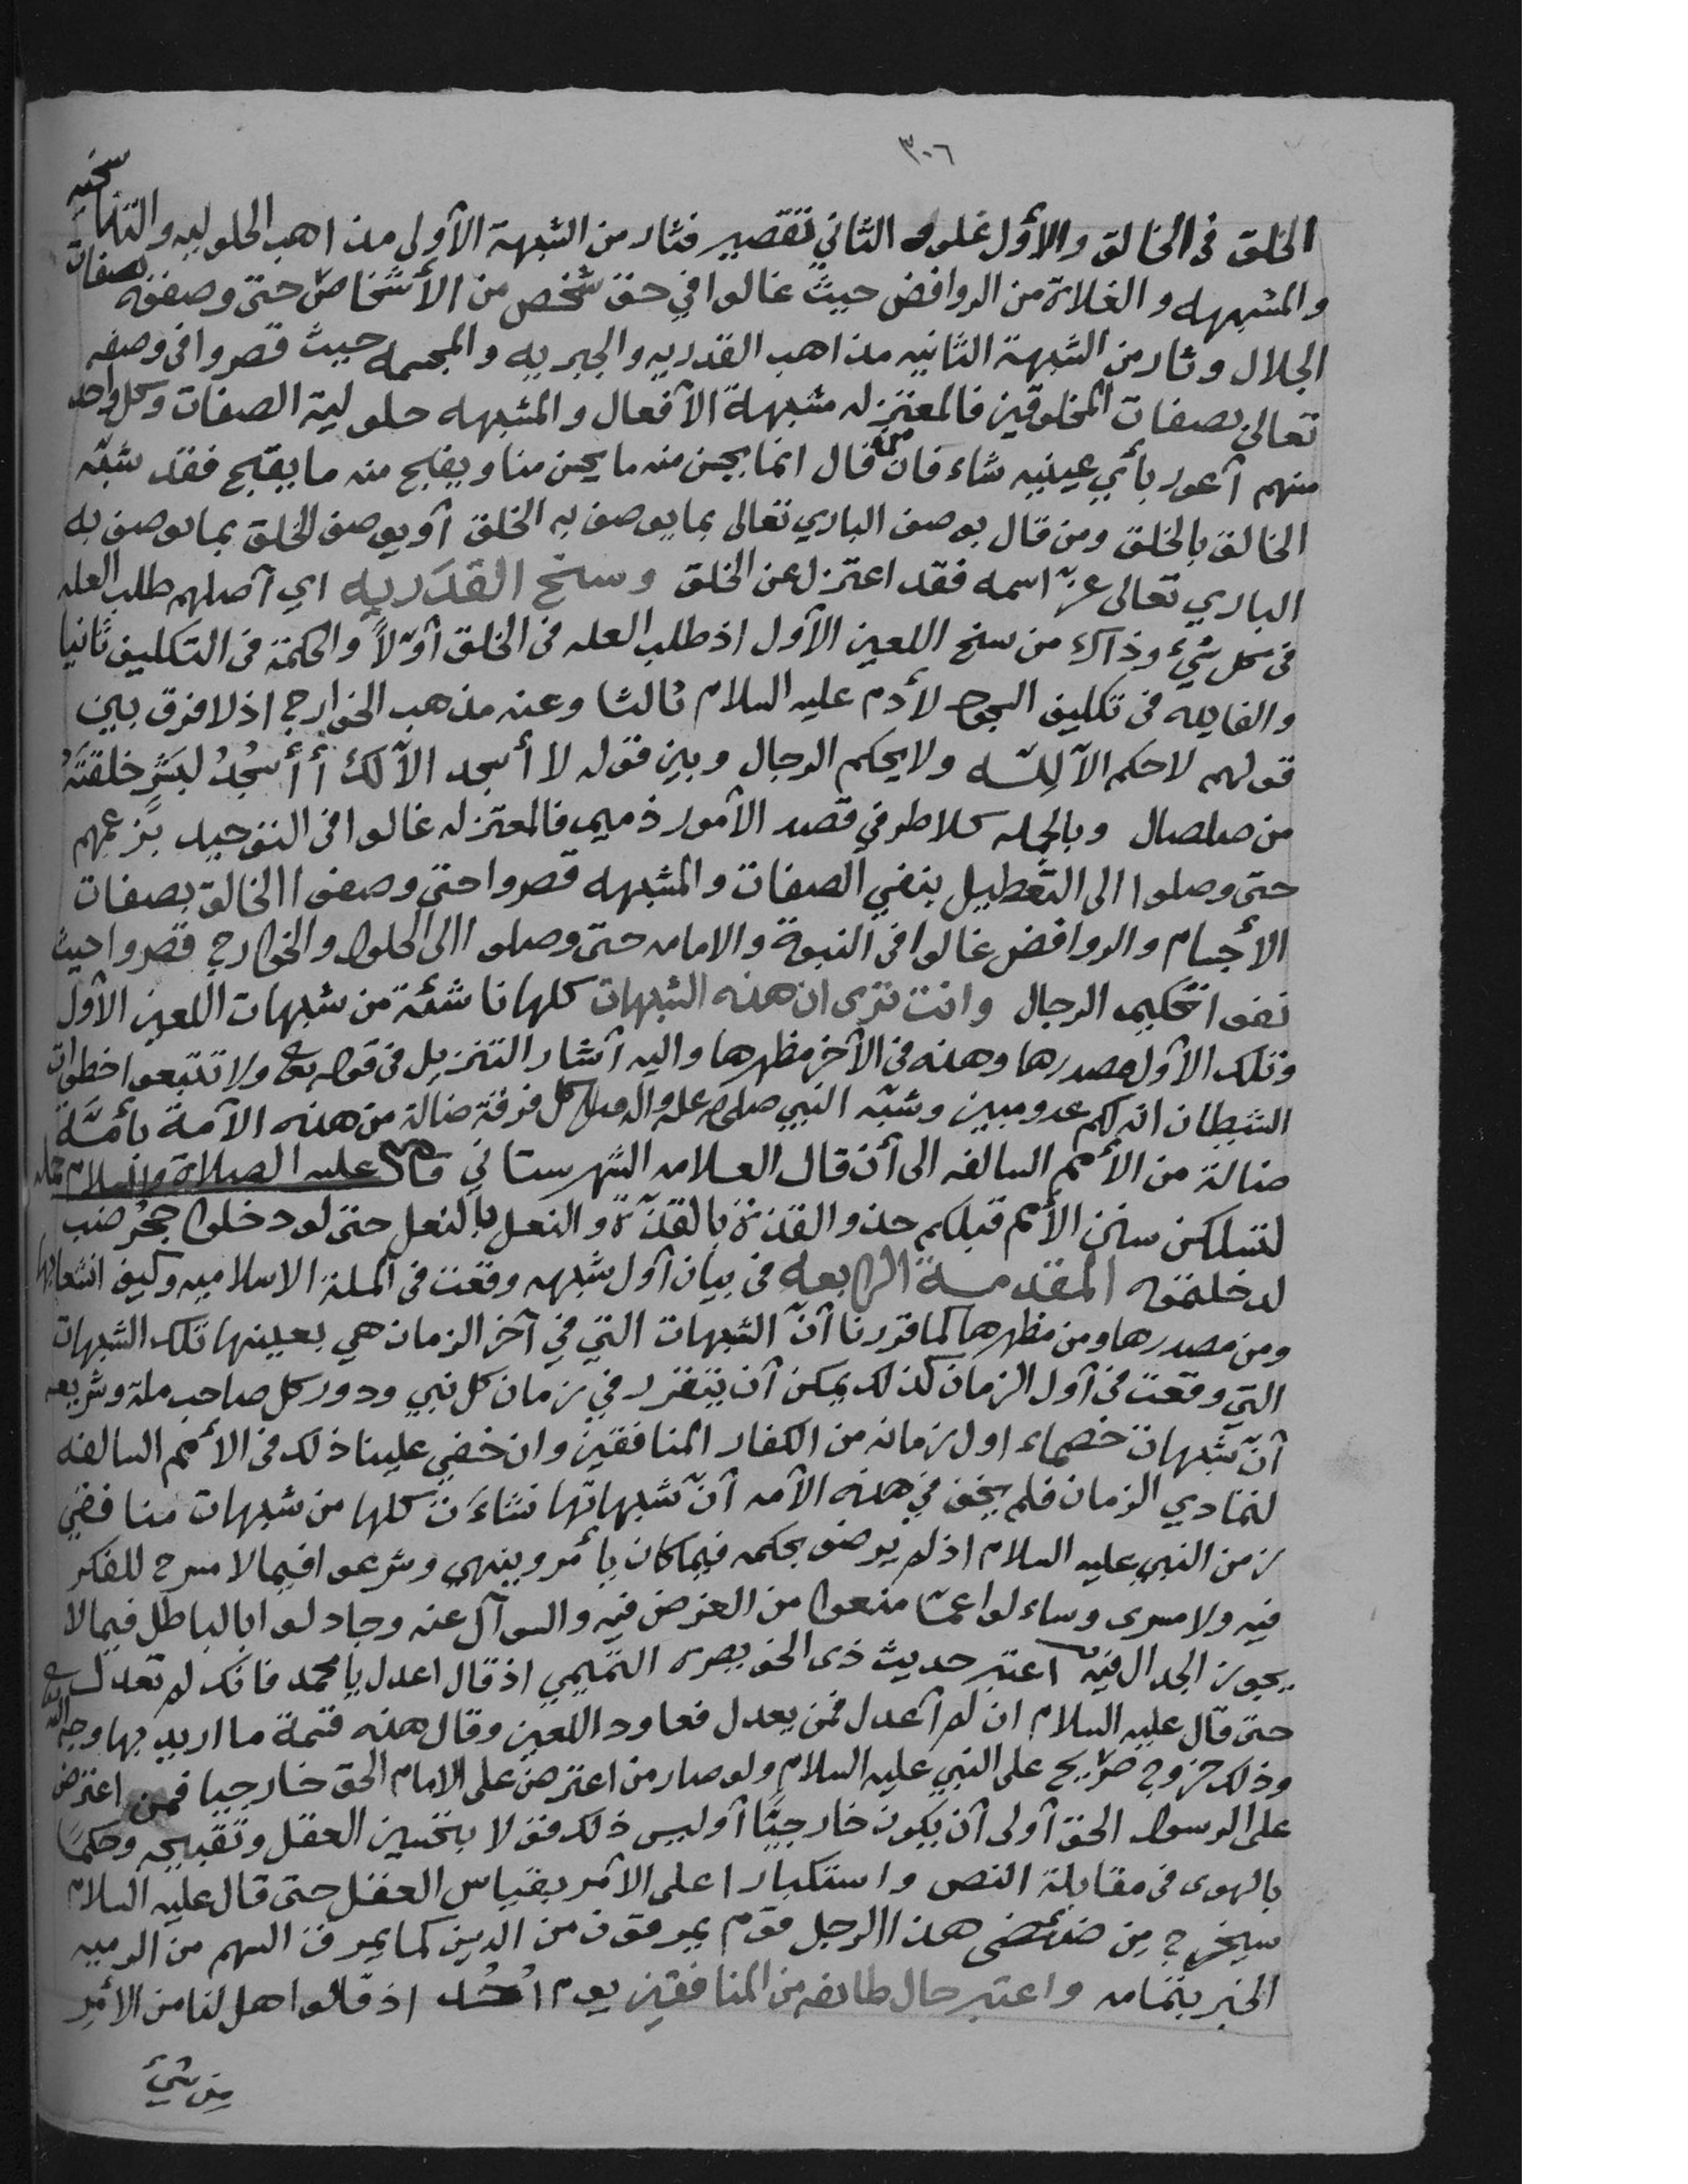 ٣٠٦
الخلق فى الخالق والأول غلو والثاني تقصير فثار من الشبهة الأولى مذاهب الحلوليه والتناسخيه
والمشبهه والغلاة من الروافض حيث غالوا في حق شخص من الأشخاص حتى وصفوه بصفات
الجلال وثار من الشبهة الثانيه مذاهب القدريه والجبريه والمجسمه حيث قصروا فى وصفه
تعالى بصفات المخلوقين فالمعتزله مشبهة الأفعال والمشبهه حلولية الصفات وكل واحد
منهم أعور بأي عينيه شاء فان من قال انما يحسن منه ما يحسن منا ويقبح منه ما يقبح فقد شبّه
الخالق بالخلق ومن قال يوصف الباري تعالى بما يوصف به الخلق أو يوصف الخلق بما يوصف به
الباري تعالى عزّ اسمه فقد اعتزل عن الخلق وسنخ القدريه اي أصلهم طلب العله
فى كل شيء وذاك من سنخ اللعين الأول اذ طلب العله فى الخلق أوّلاً والحكمة فى التكليف ثانيا
والفايدة فى تكليف السجود لأدم عليه السلام ثالثا وعنه مذهب الخوارج اذ لا فرق بين
قولهم لا حكم الآ لِلّه ولا يحكم الرجال وبين قوله لا أسجد الآ لك أ أسْجُدُ لبشرٍ خلقتَهُ
من صلصال وبالجمله كلا طرفي قصد الأمور ذميم فالمعتزله غالوا فى التوحيد بزعمهم
حتى وصلوا الى التعطيل بنفي الصفات والمشبهه قصروا حتى وصفوا الخالق بصفات
الأجسام والروافض غالوا فى النبوة والامامه حتى وصلوا الى الحلول والخوارج قصروا حيث
نفوا تحكيم الرجال وانت ترى ان هذه الشبهات كلها ناشئة من شبهات اللعين الأول
وتلك الأول مصدرها وهذه فى الآخر مظهرها واليه أشار التنزيل فى قوله تعالى ولا تتبعوا خطوات
الشيطان انه لكم عدو مبين وشبّه النبي صلى الله عليه واله وسلم كل فرقة ضالة من هذه الأمة بأمّة
ضالة من الأمم السالفه الى أن قال العلامه الشهرستاني قال عليه الصلاة والسلام جمله
لتسلكن سنن الأمم قبلكم حذو القذة بالقذّة والنعل بالنعل حتى لو دخلوا جحر ضب
لدخلتموه المقدمة الرابعه فى بيان أول شبهه وقعت فى الملة الاسلاميه وكيف انشعابها
ومن مصدرها ومن مظهرها كما قررنا أنّ الشبهات التي في آخر الزمان هي بعينها تلك الشبهات
التي وقعت فى أول الزمان كذلك يمكن أن يتقرر في زمان كل نبي ودور كل صاحب ملة وشريعه
أنّ شبهات خصماء اول زمانه من الكفار المنافقين وان خفي علينا ذلك فى الأمم السالفه
لتمادي الزمان فلم يخف في هذه الأمه أنّ شبهاتها نشاءَت كلها من شبهات منافقي
زمن النبي عليه السلام اذ لم يرضو بحكمه فيما كان يأمر وينهى وشرعوا فيما لا مسرح للفكر
فيه ولا مسرى وساءلوا عمّا منعوا من الغرض فيه والسوآل عنه وجادلوا بالباطل فيما لا
يجوز الجدال فيه اعتبر حديث ذى الخويصره التميمي اذ قال اعدل يا محمد فانك لم تعدل
حتى قال عليه السلام ان لم أعدل فمن يعدل فعاود اللعين وقال هذه قسمة ما اريد بها وجه الله تعالى
وذلك خروج صريح على النبي عليه السلام ولو صار من اعترض على الامام الحق خارجيا فمن اعترض
على الرسول الحق أولى أن يكون خارجيًّا أوليس ذلك قولا بتحسين العقل وتقبيحه وحكمًا
بالهوى فى مقابلة النص واستكبارا على الأمر بقياس العقل حتى قال عليه السلام
سيخرج مِن ضئضئى هذا الرجل قوم يمرقون من الدين كما يمرق السهم من الرميه
الخبر بتمامه واعتبر حال طائفه من المنافقين يوم اُحُد اذ قالوا هل لنا من الأمر
مِن شيءٍ